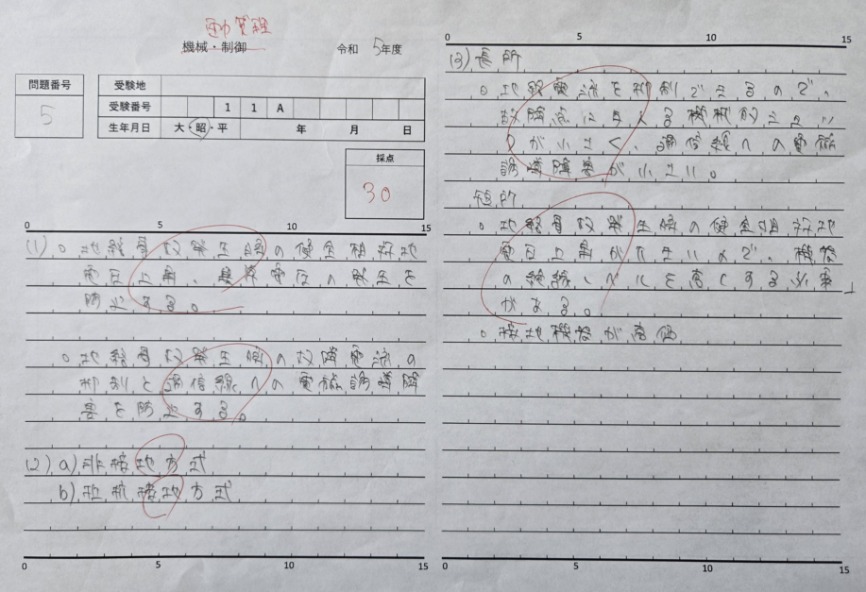 電力管理
機械・制御
令和 5年度
問題番号
5
受験地
受験番号 1 1 A
生年月日 大・昭・平 年 月 日
採点
30
0 5 10 15
(1) ○ 地絡事故発生時の健全相対地
電圧上昇、異常電圧の発生を
防止する。
○ 地絡事故発生時の故障電流の
抑制と通信線への電磁誘導障
害を防止する。
(2) a) 非接地方式
b) 抵抗接地方式
0 5 10 15
0 5 10 15
(3) 長所
○ 地絡電流を抑制できるので、
故障点に与える機械的ショッ
クが小さく、通信線への電磁
誘導障害が小さい。
短所
○ 地絡事故発生時の健全相対地
電圧上昇が大きいので、機器
の絶縁レベルを高くする必要
がある。
○ 接地機器が高価
0 5 10 15